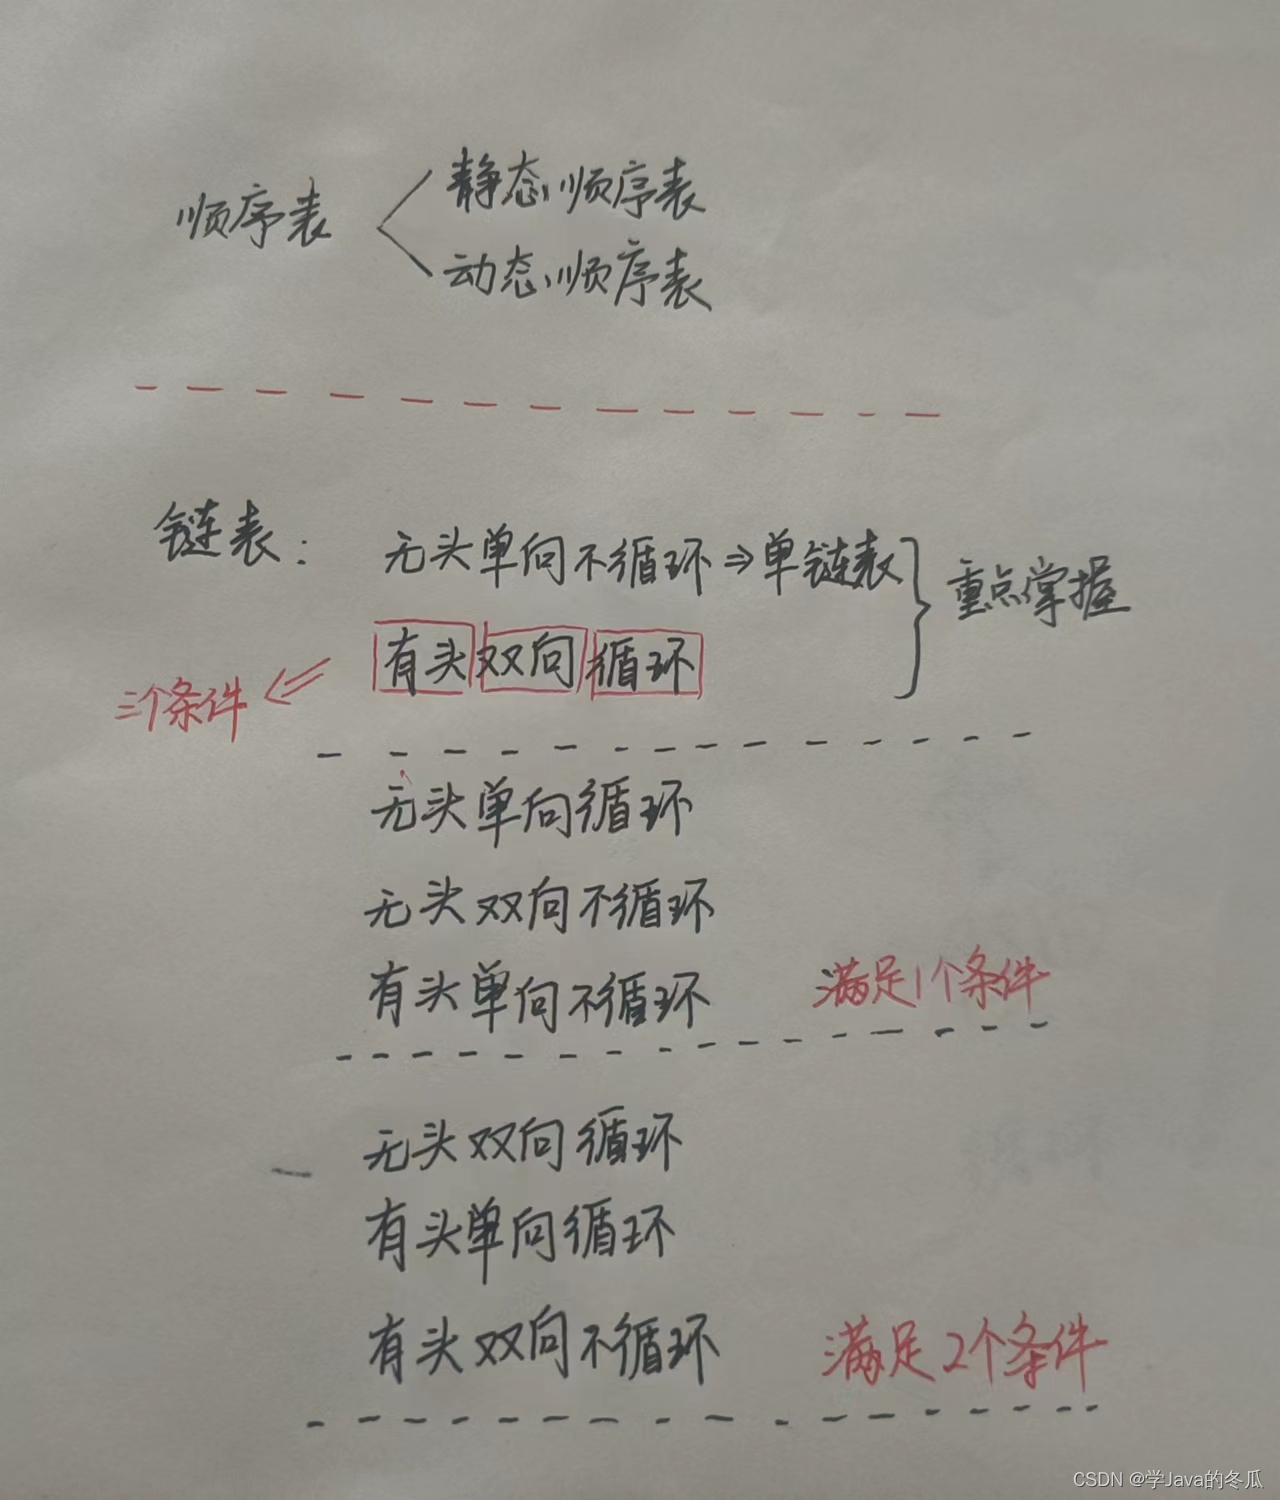 顺序表
静态顺序表
动态顺序表
链表：
无头单向不循环⇒单链表
重点掌握
有头双向循环
三个条件
无头单向循环
无头双向不循环
有头单向不循环 满足1个条件
无头双向循环
有头单向循环
有头双向不循环 满足2个条件
CSDN @学Java的冬瓜